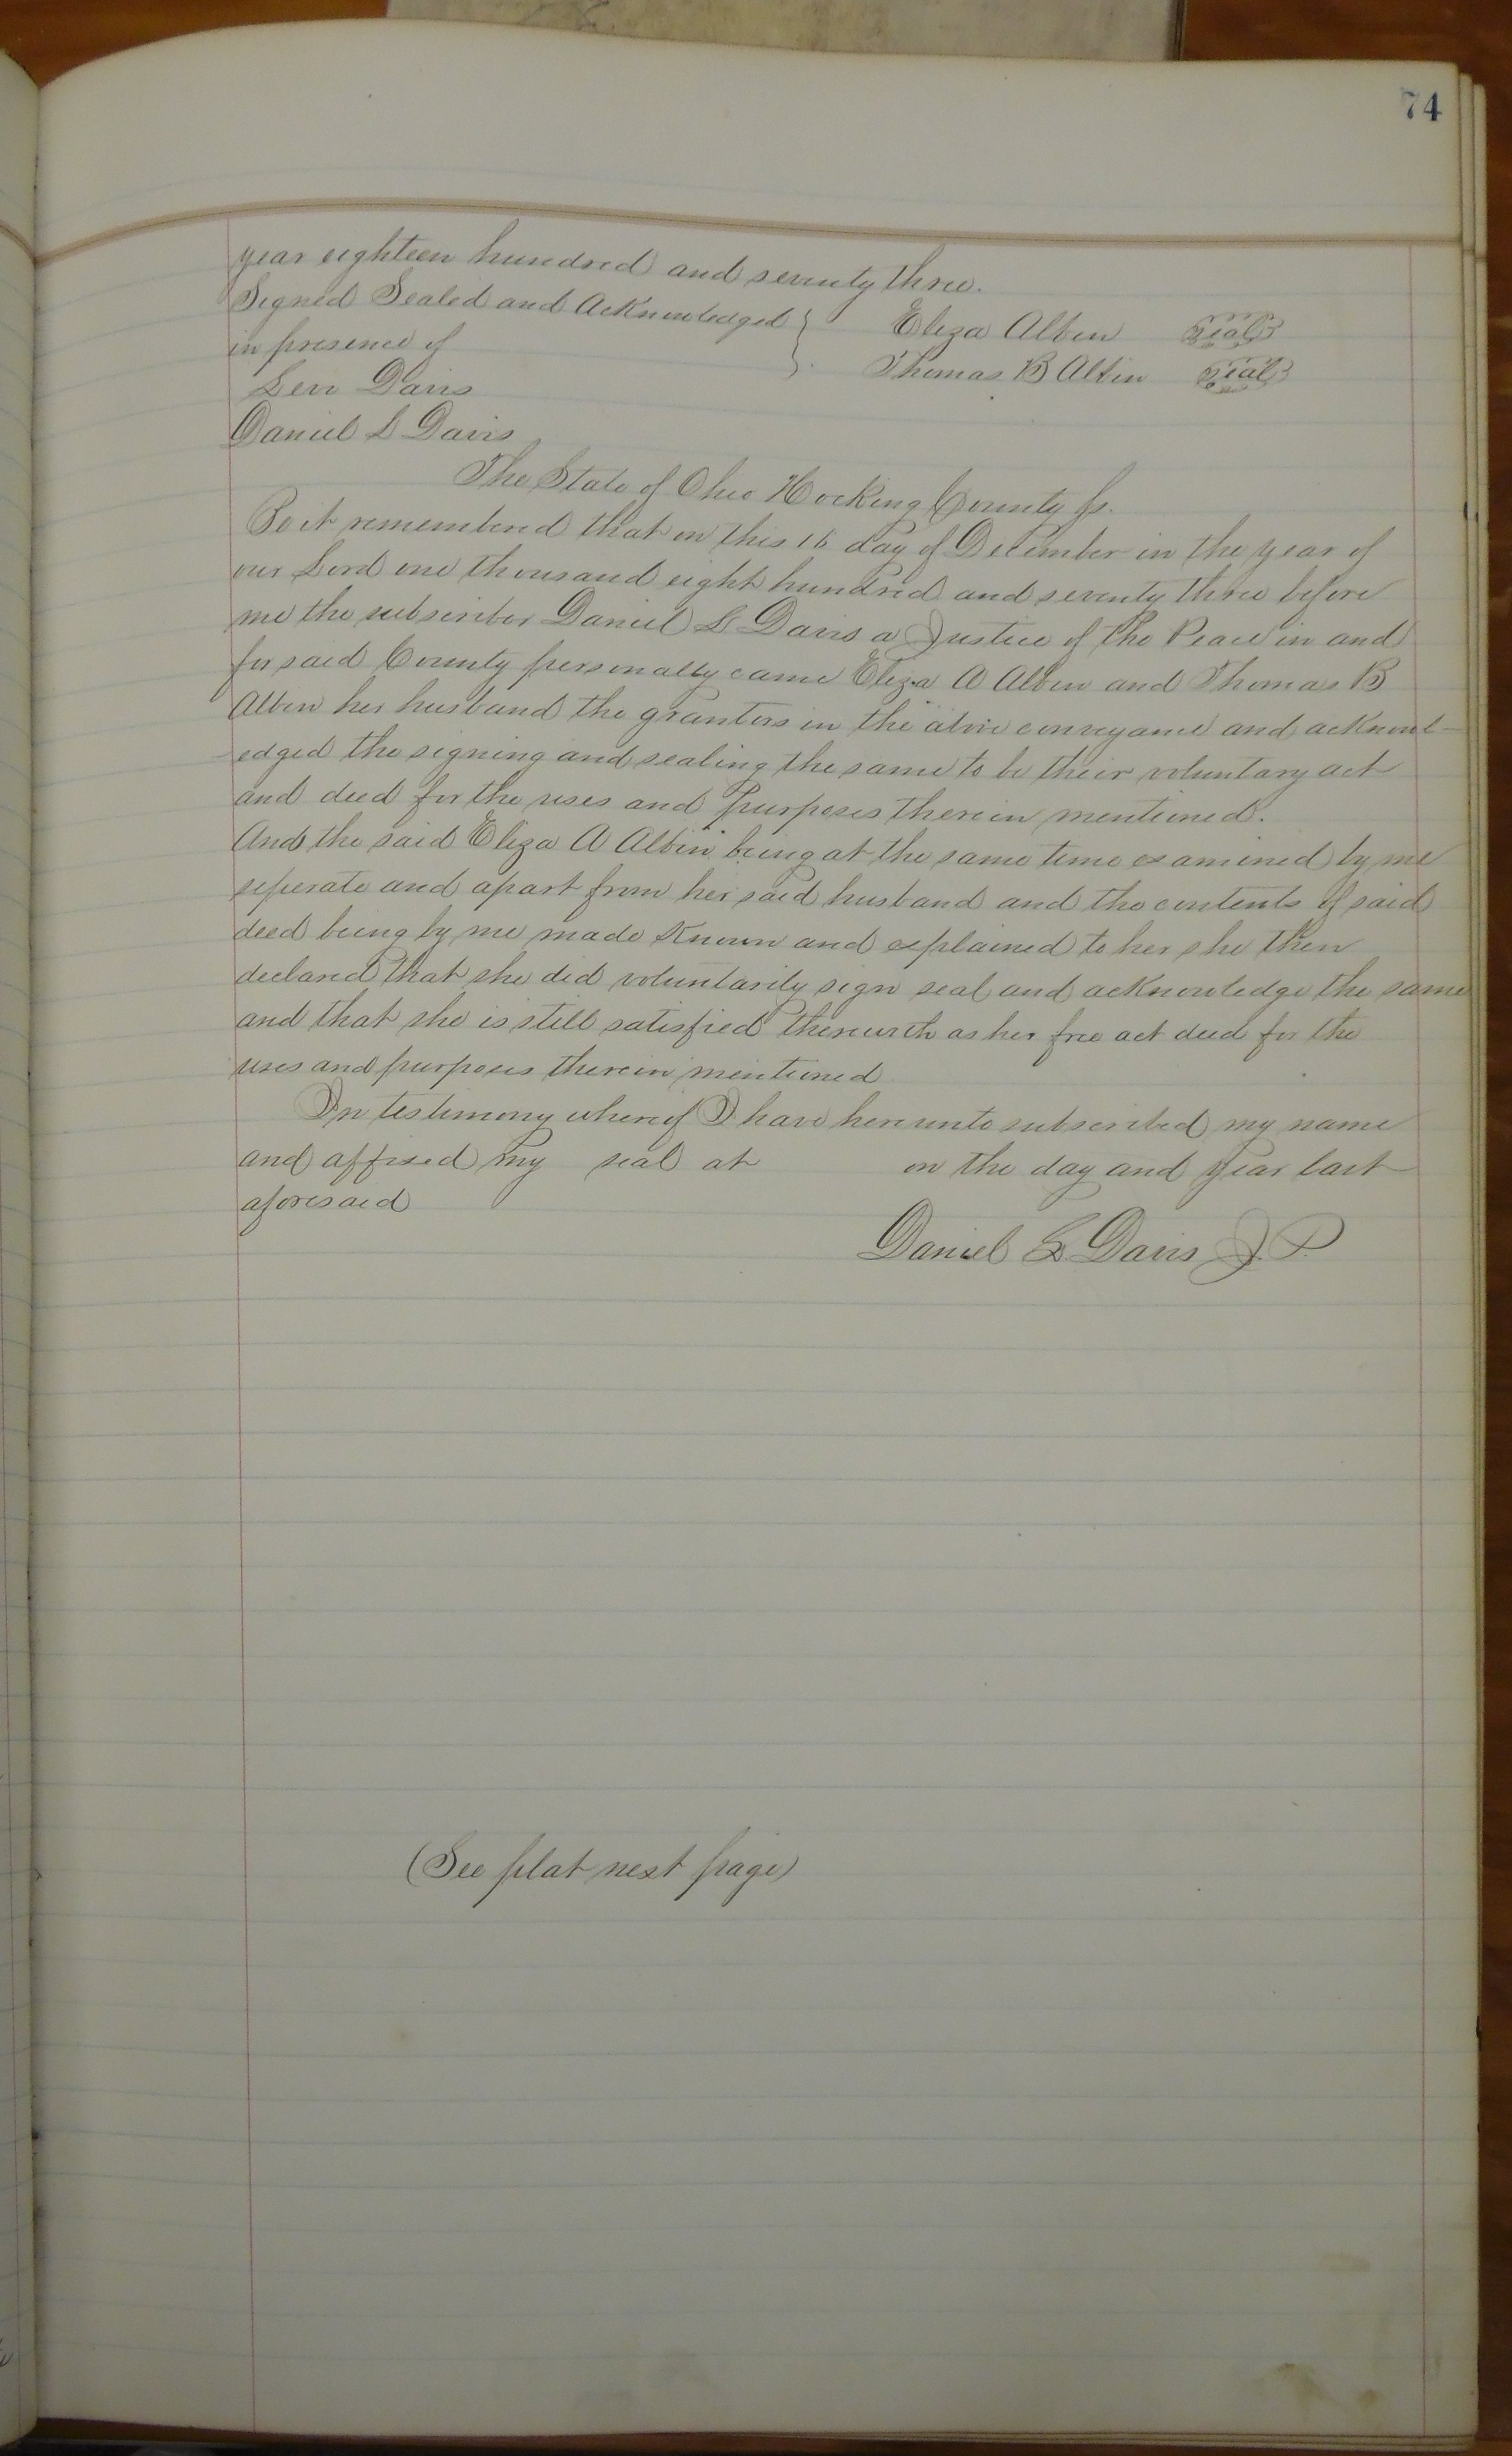 74
year eighteen hundred and seventy three.
Signed Sealed and Acknowledged } Eliza Albin seal
in presence of Thomas B Albin seal
Levi Davis
Daniel L Davis
The State of Ohio Hocking County Ss.
Be it remembered that on this 16 day of December in the year of
our Lord one thousand eight hundred and seventy three before
me the subscriber Daniel L Davis a Justice of the Peace in and
for said County personally came Eliza A Albin and Thomas B
Albin her husband the grantors in the above conveyance and acknowl-
-edged the signing and sealing the same to be their voluntary act
and deed for the uses and purposes therein mentioned.
And the said Eliza A Albin being at the same time examined by me
seperate and apart from her said husband and the contents of said
deed being by me made Known and explained to her she then
declared that she did voluntarily sign seal and acknowledge the same
and that she is still satisfied therewith as her free act deed for the
uses and purposes therein mentioned
In testimony whereof I have hereunto subscribed my name
and affixed my seal at on the day and year last
aforesaid
Daniel L. Davis J. P.
(See plat next page)